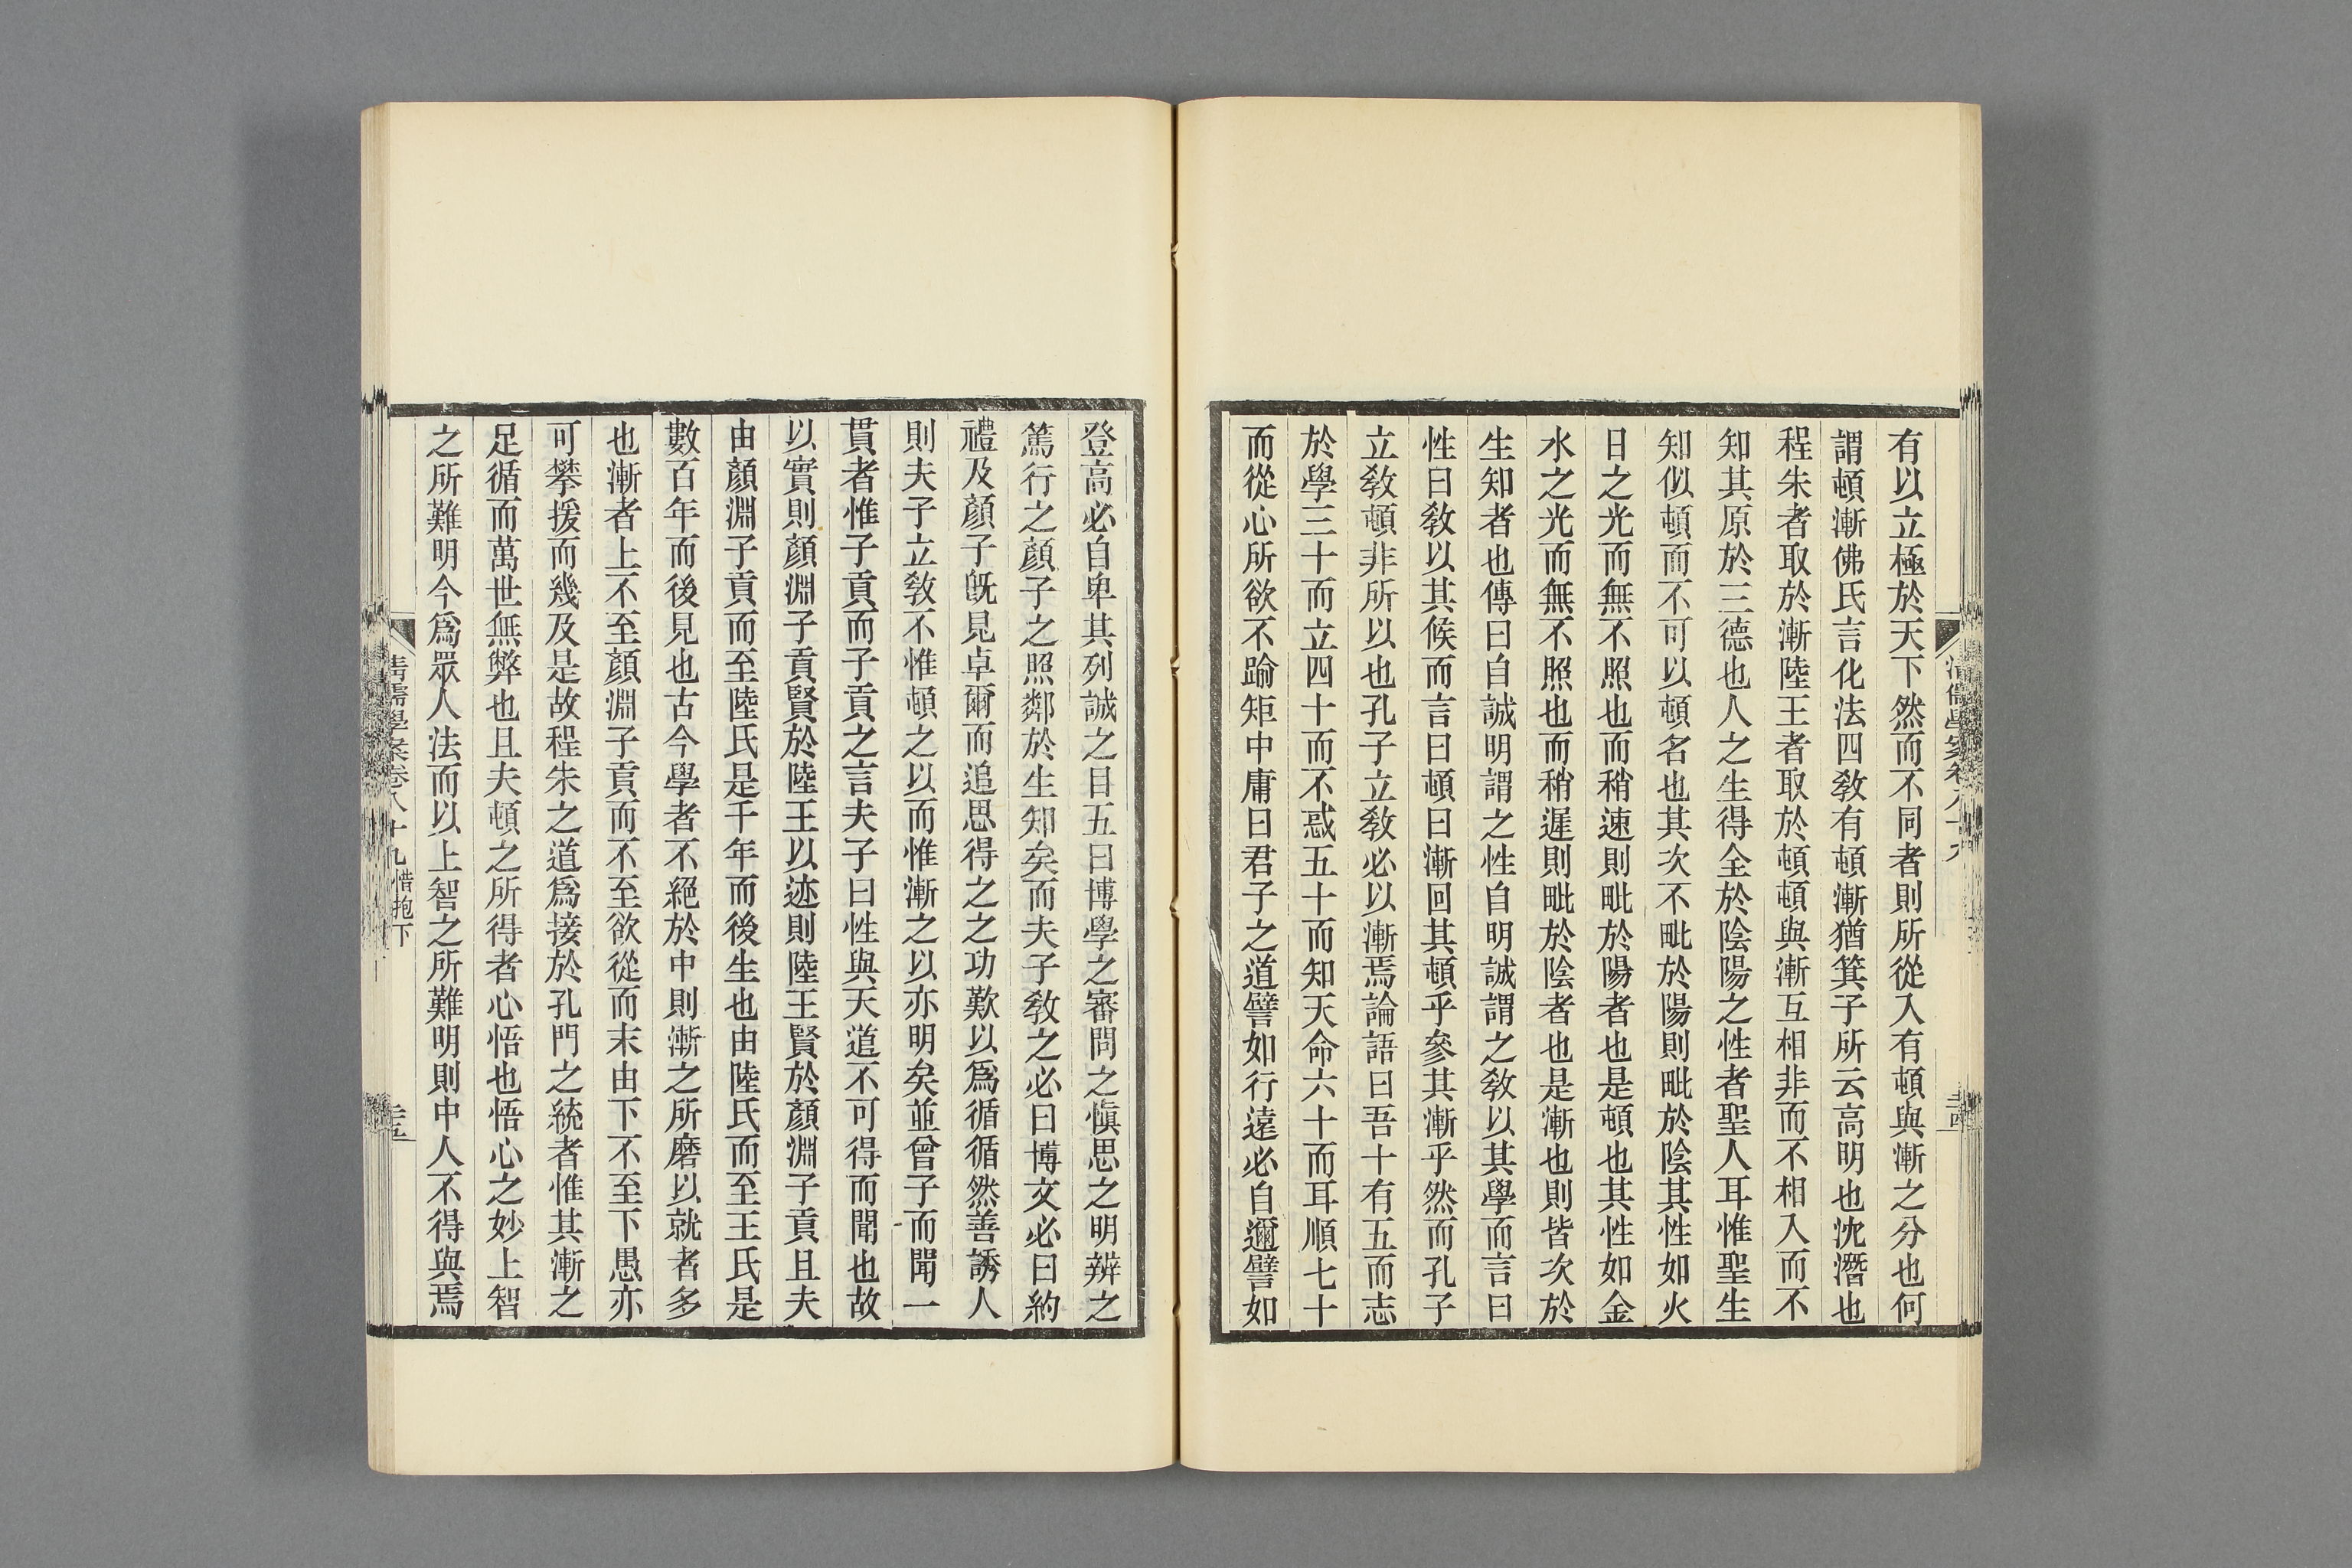 有以立極於天下然而不同者則所從入有頓與漸之分也何
謂頓漸佛氏言化法四教有頓漸猶箕子所云高明也沈潛也
程朱者取於漸陸王者取於頓頓與漸互相非而不相入而不
知其原於三德也人之生得全於陰陽之性者聖人耳惟聖生
知似頓而不可以頓名也其次不毗於陽則毗於陰其性如火
日之光而無不照也而稍速則毗於陽者也是頓也其性如金
水之光而無不照也而稍遲則毗於陰者也是漸也則皆次於
生知者也傳曰自誠明謂之性自明誠謂之敎以其學而言曰
性曰敎以其候而言曰頓曰漸回其頓乎參其漸乎然而孔子
立敎頓非所以也孔子立敎必以漸焉論語曰吾十有五而志
於學三十而立四十而不惑五十而知天命六十而耳順七十
而從心所欲不踰矩中庸曰君子之道譬如行遠必自邇譬如
登高必自卑其列誠之目五曰博學之審問之愼思之明辨之
篤行之顏子之照鄰於生知矣而夫子敎之必曰博文必曰約
禮及顏子旣見卓爾而追思得之之功歎以爲循循然善誘人
則夫子立敎不惟頓之以而惟漸之以亦明矣並曾子而聞一
貫者惟子貢而子貢之言夫子曰性與天道不可得而聞也故
以實則顏淵子貢賢於陸王以迹則陸王賢於顏淵子貢且夫
由顏淵子貢而至陸氏是千年而後生也由陸氏而至王氏是
數百年而後見也古今學者不絕於中則漸之所磨以就者多
也漸者上不至顏淵子貢而不至欲從而末由下不至下愚亦
可攀援而幾及是故程朱之道爲接於孔門之統者惟其漸之
足循而萬世無弊也且夫頓之所得者心悟也悟心之妙上智
之所難明今爲眾人法而以上智之所難明則中人不得與焉
清儒學案卷八十九 惜抱下